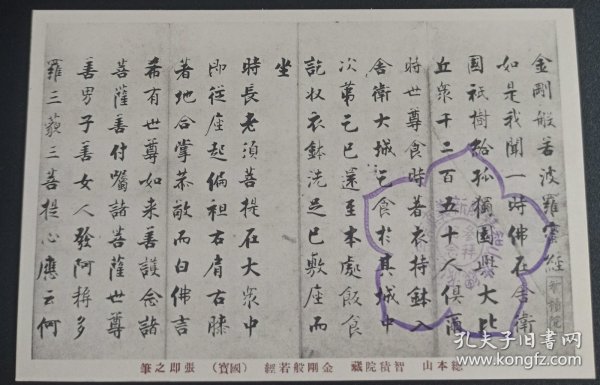 金剛般若波羅蜜經
如是我聞一時佛在舍衛
國祇樹給孤獨園與大比
丘眾千二百五十人俱爾
時世尊食時著衣持鉢入
舍衛大城乞食於其城中
次第乞已還至本處飯食
訖收衣鉢洗足已敷座而
坐
時長老須菩提在大眾中
即從座起偏袒右肩右膝
著地合掌恭敬而白佛言
希有世尊如来善護念諸
菩薩善付囑諸菩薩世尊
善男子善女人發阿耨多
羅三藐三菩提心應云何
總本山 智積院藏 金剛般若經 (國寶) 張即之筆
孔夫子旧书网
book.kongfz.com